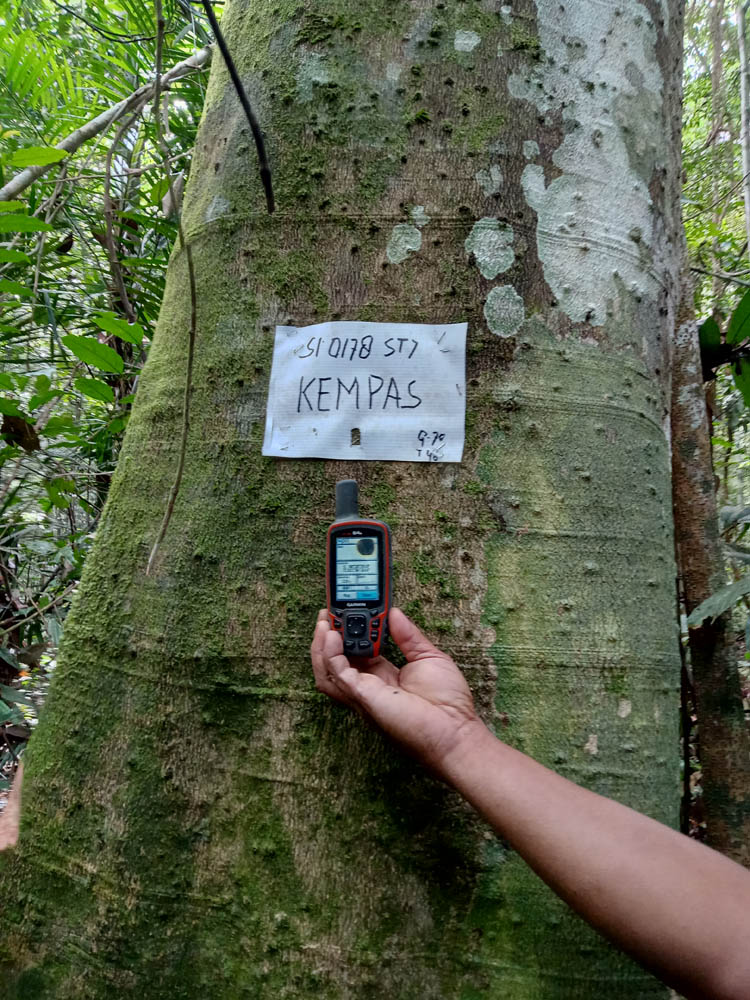 SI 0178 ST7
KEMPAS
G-70
T 40
GARMIN